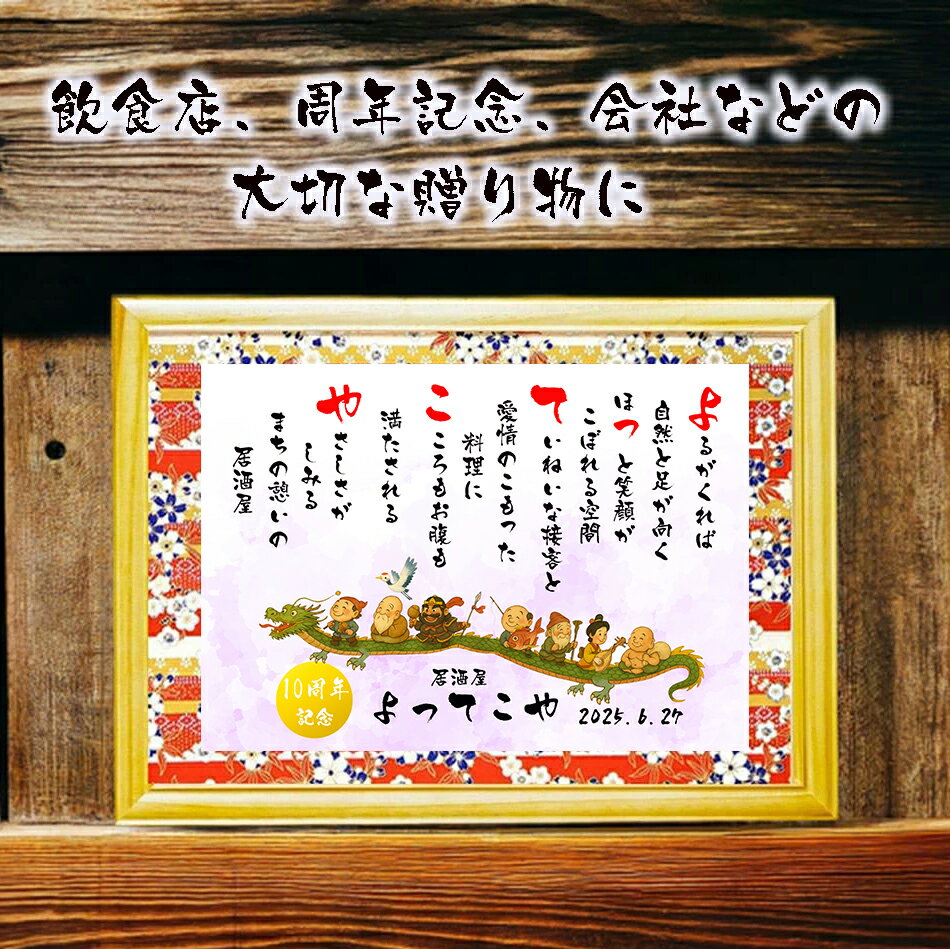 飲食店、周年記念、会社などの
大切な贈り物に
よるがくれば
自然と足が向く
ほっと笑顔が
こぼれる空間
ていねいな接客と
愛情のこもった
料理に
こころもお腹も
満たされる
やさしさが
しみる
まちの憩いの
居酒屋
10周年
記念
居酒屋
よってこや
2025.6.27